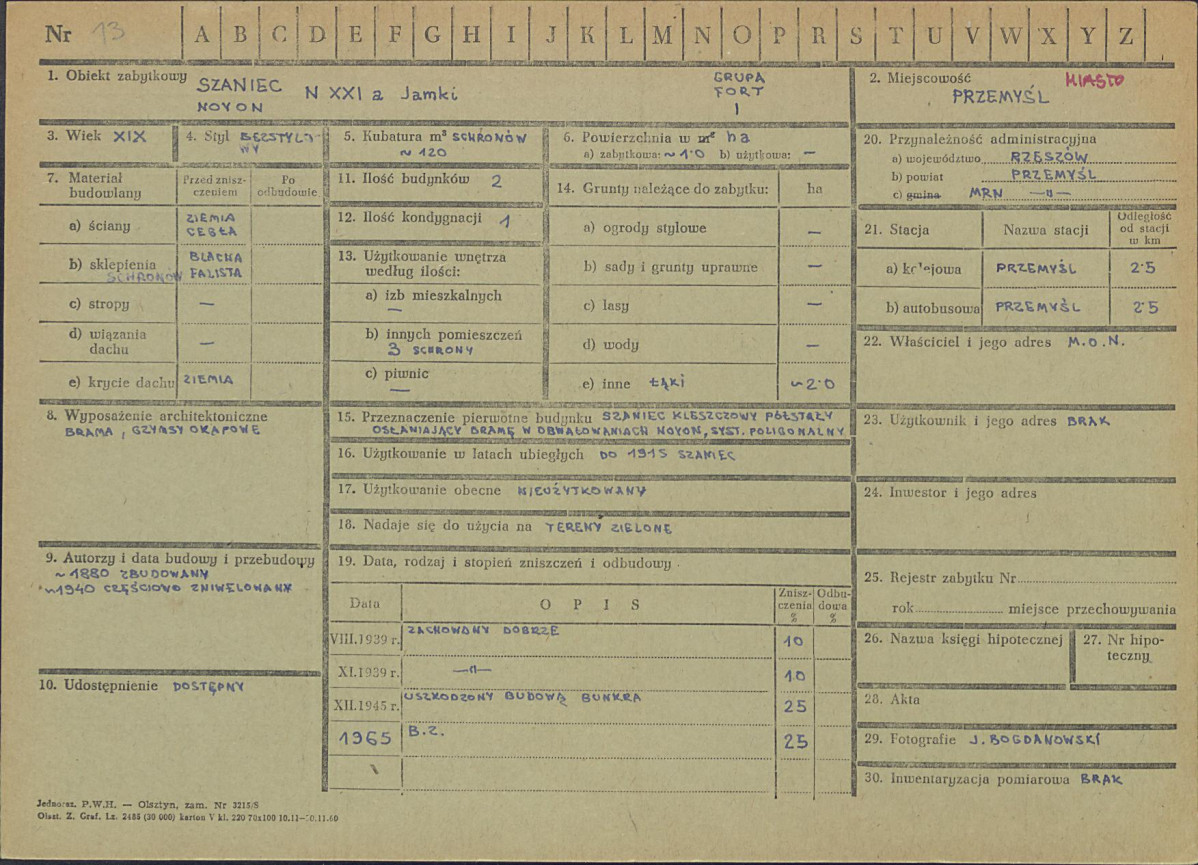 Nr 13 A B C D E F G H I J K L M N O P R S T U V W X Y Z
1. Obiekt zabytkowy SZANIEC N XXI a Jamki
NOYON
GRUPA
FORT
I
2. Miejscowość MIASTO
PRZEMYŚL
3. Wiek XIX
4. Styl BEZSTYLO-
WY
5. Kubatura m³ SCHRONÓW
~ 120
6. Powierzchnia w m² ha
a) zabytkowa: ~ 1·0 b) użytkowa: —
7. Materiał
budowlany
Przed znisz-
czeniem
Po
odbudowie
a) ściany ZIEMIA
CEGŁA
b) sklepienia BLACHA
SCHRONÓW FALISTA
c) stropy —
d) wiązania
dachu —
e) krycie dachu ZIEMIA
11. Ilość budynków 2
12. Ilość kondygnacji 1
13. Użytkowanie wnętrza
według ilości:
a) izb mieszkalnych
—
b) innych pomieszczeń
3 SCHRONY
c) piwnic
—
14. Grunty należące do zabytku: ha
a) ogrody stylowe —
b) sady i grunty uprawne —
c) lasy —
d) wody —
e) inne ŁĄKI ~2·0
20. Przynależność administracyjna
a) województwo RZESZÓW
b) powiat PRZEMYŚL
c) gmina MRN —"—
21. Stacja Nazwa stacji
Odległość
od stacji
w km
a) kolejowa PRZEMYŚL 2·5
b) autobusowa PRZEMYŚL 2·5
22. Właściciel i jego adres M.O.N.
8. Wyposażenie architektoniczne
BRAMA, GZYMSY OKAPOWE
15. Przeznaczenie pierwotne budynku SZANIEC KLESZCZOWY PÓŁSTAŁY
OSŁANIAJĄCY BRAMĘ W OBWAŁOWANIACH NOYON, SYST. POLIGONALNY
16. Użytkowanie w latach ubiegłych DO 1915 SZANIEC
17. Użytkowanie obecne NIEUŻYTKOWANY
18. Nadaje się do użycia na TERENY ZIELONE
23. Użytkownik i jego adres BRAK
24. Inwestor i jego adres
9. Autorzy i data budowy i przebudowy
~ 1880 ZBUDOWANY
~1940 CZĘŚCIOWO ZNIWELOWANY
10. Udostępnienie DOSTĘPNY
19. Data, rodzaj i stopień zniszczeń i odbudowy
Data OPIS
Znisz-
czenia
%
Odbu-
dowa
%
VIII.1939 r. ZACHOWANY DOBRZE 10
XI.1939 r. —"— 10
XII.1945 r. USZKODZONY BUDOWĄ BUNKRA 25
1965 B.Z. 25
25. Rejestr zabytku Nr
rok miejsce przechowywania
26. Nazwa księgi hipotecznej
27. Nr hipo-
teczny
28. Akta
29. Fotografie J. BOGDANOWSKI
30. Inwentaryzacja pomiarowa BRAK
Jednoraz. P.W.H. — Olsztyn, zam. Nr 3215/S
Olszt. Z. Graf. Lz. 2485 (30 000) karton V kl. 220 70x100